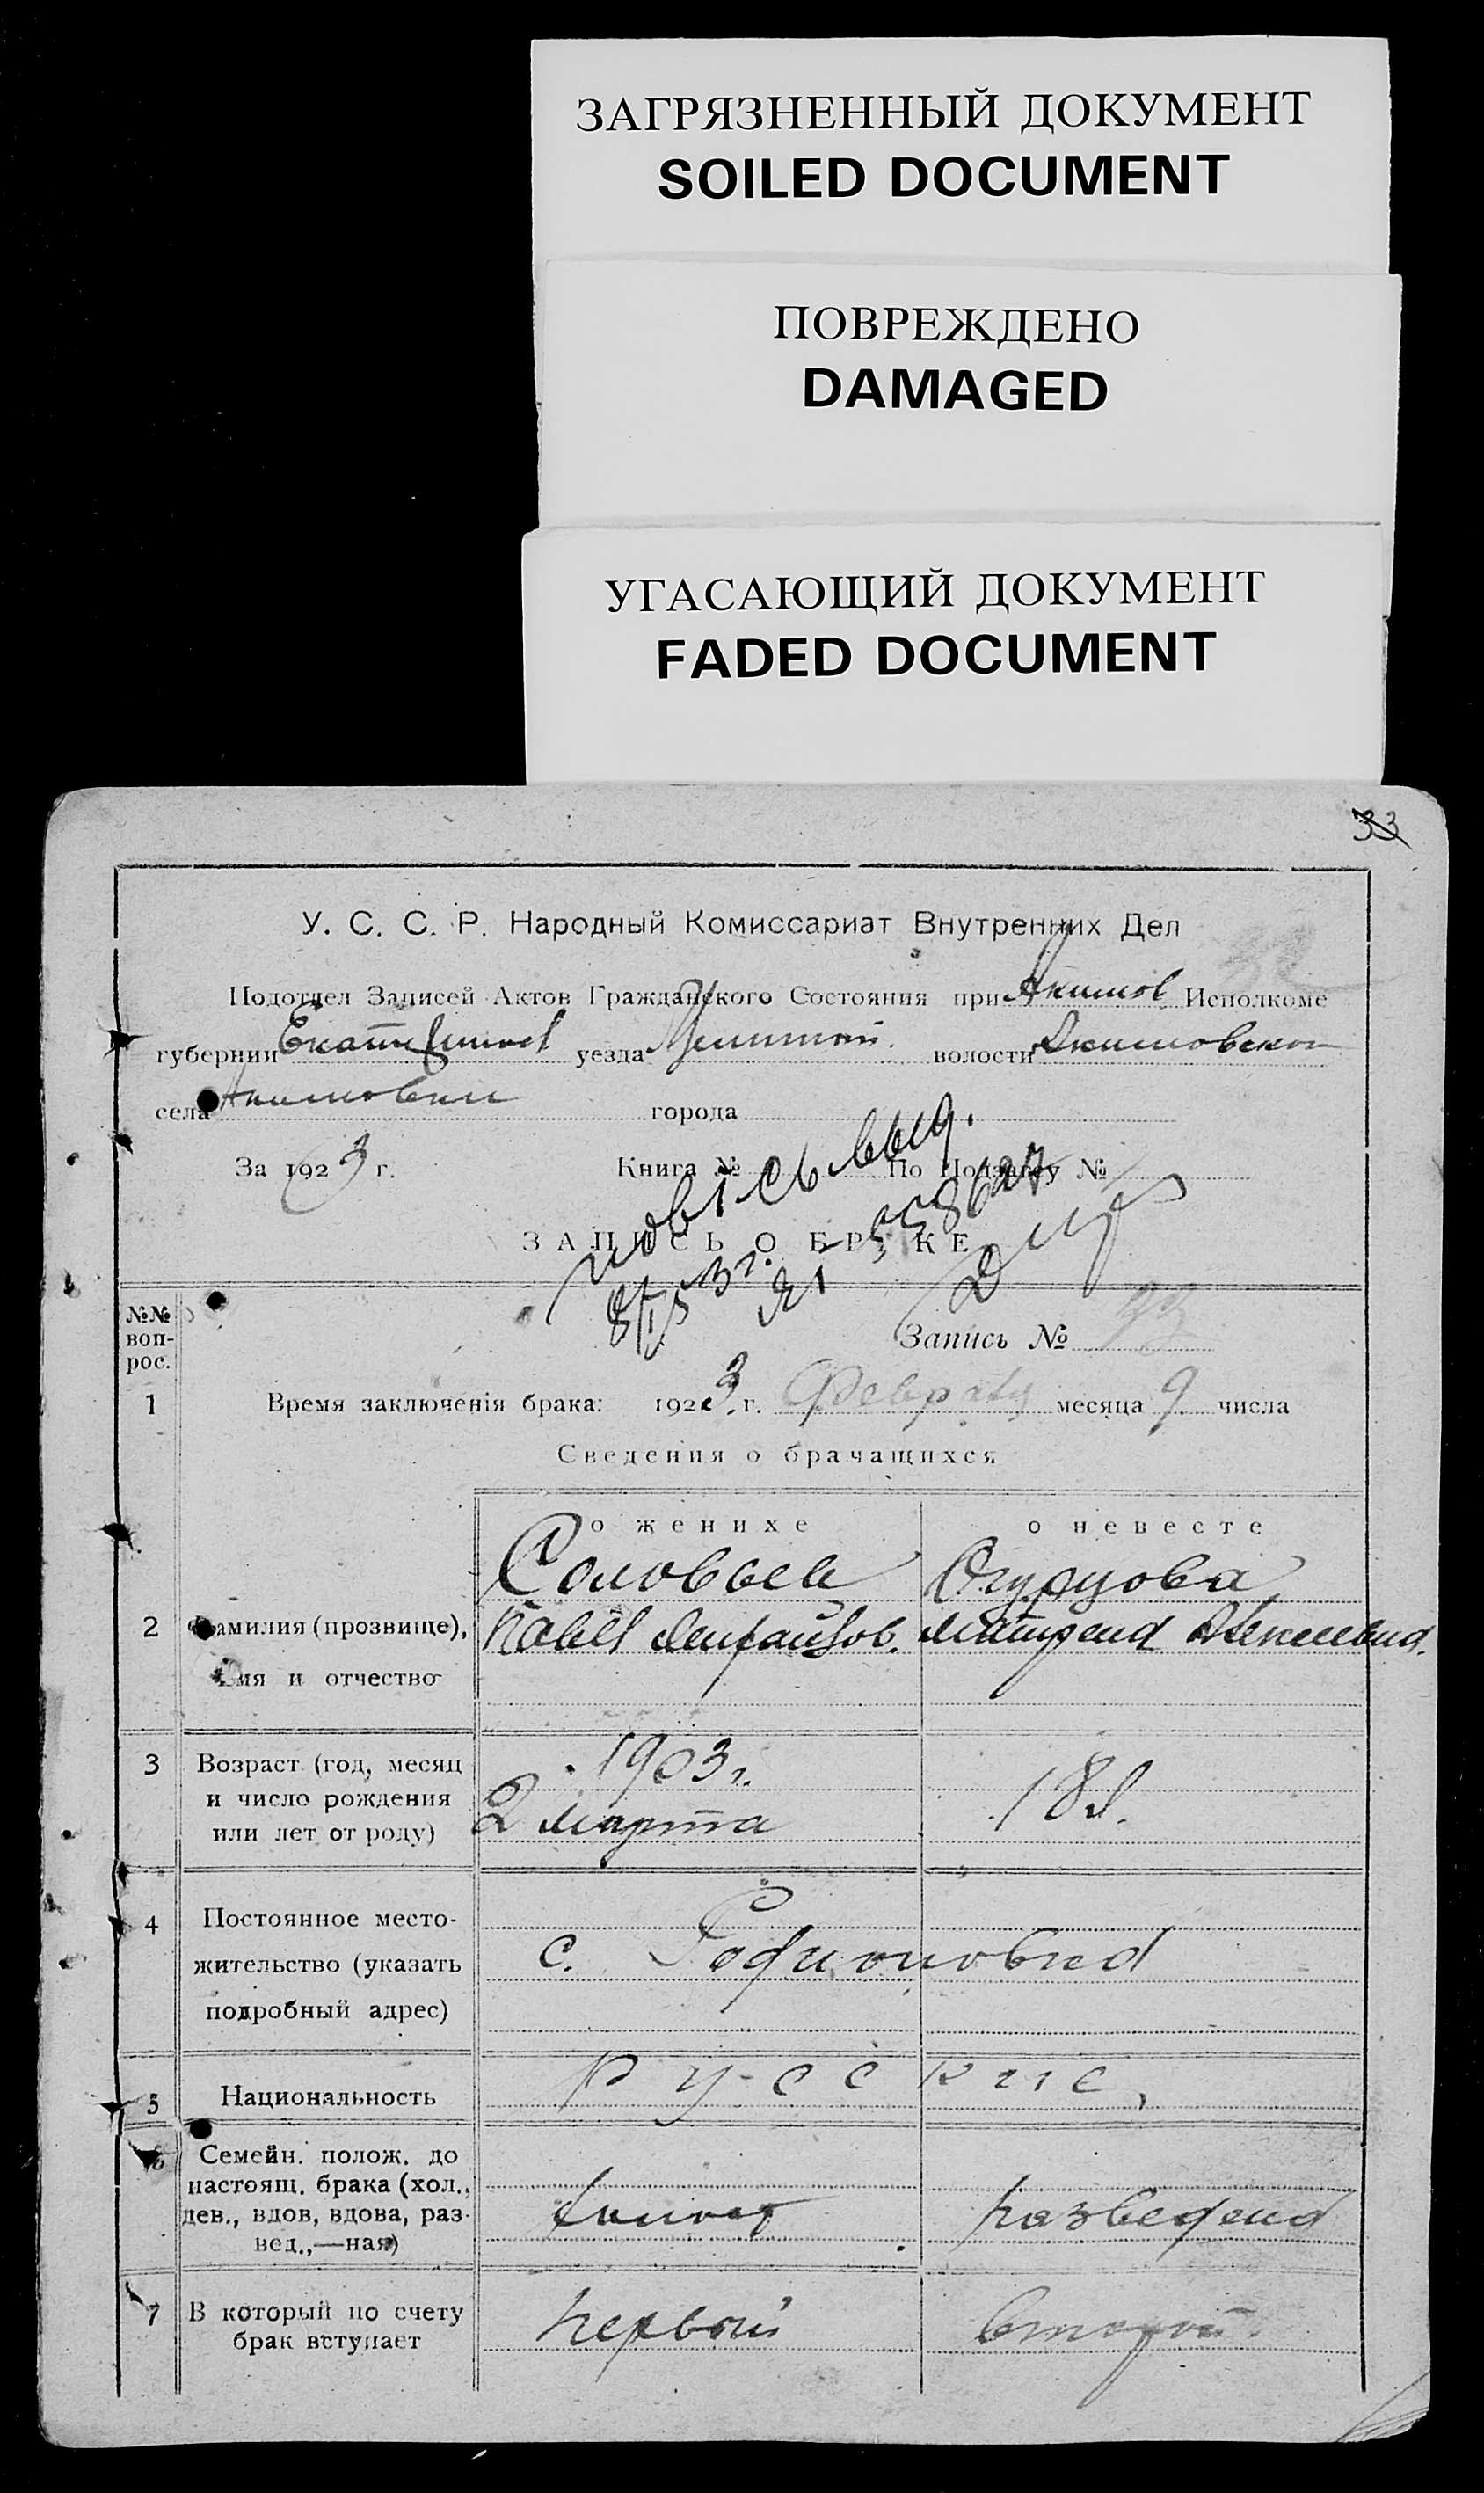 ЗАГРЯЗНЕННЫЙ ДОКУМЕНТ
SOILED DOCUMENT
ПОВРЕЖДЕНО
DAMAGED
УГАСАЮЩИЙ ДОКУМЕНТ
FADED DOCUMENT
33
У. С. С. Р. Народный Комиссариат Внутренних Дел
Подотдел Записей Актов Гражданского Состояния при Акимов Исполкоме
губернии Екатеринос уезда волости Акимовской
села Акимовки города
За 1923 г. Книга № По Порядку №
выд.
ЗАПИСЬ О БРАКЕ
№№ воп- рос.
Запись № 33
1 Время заключенія брака: 1923 г. Февраля месяца 9 числа
Сведения о брачащихся
о женихе о невесте
Соловьев Огурцова
2 Фамилия (прозвище), Павел Митрена Алексеевна.
имя и отчество
3 Возраст (год, месяц 1903 г.
и число рождения 2 марта 18 л.
или лет от роду)
4 Постоянное место-
жительство (указать с. Родионовка
подробный адрес)
5 Национальность русские,
6 Семейн. полож. до
настоящ. брака (хол.,
дев., вдов, вдова, раз- холост разведена
вед.,—ная)
7 В который по счету первый второй
брак вступает